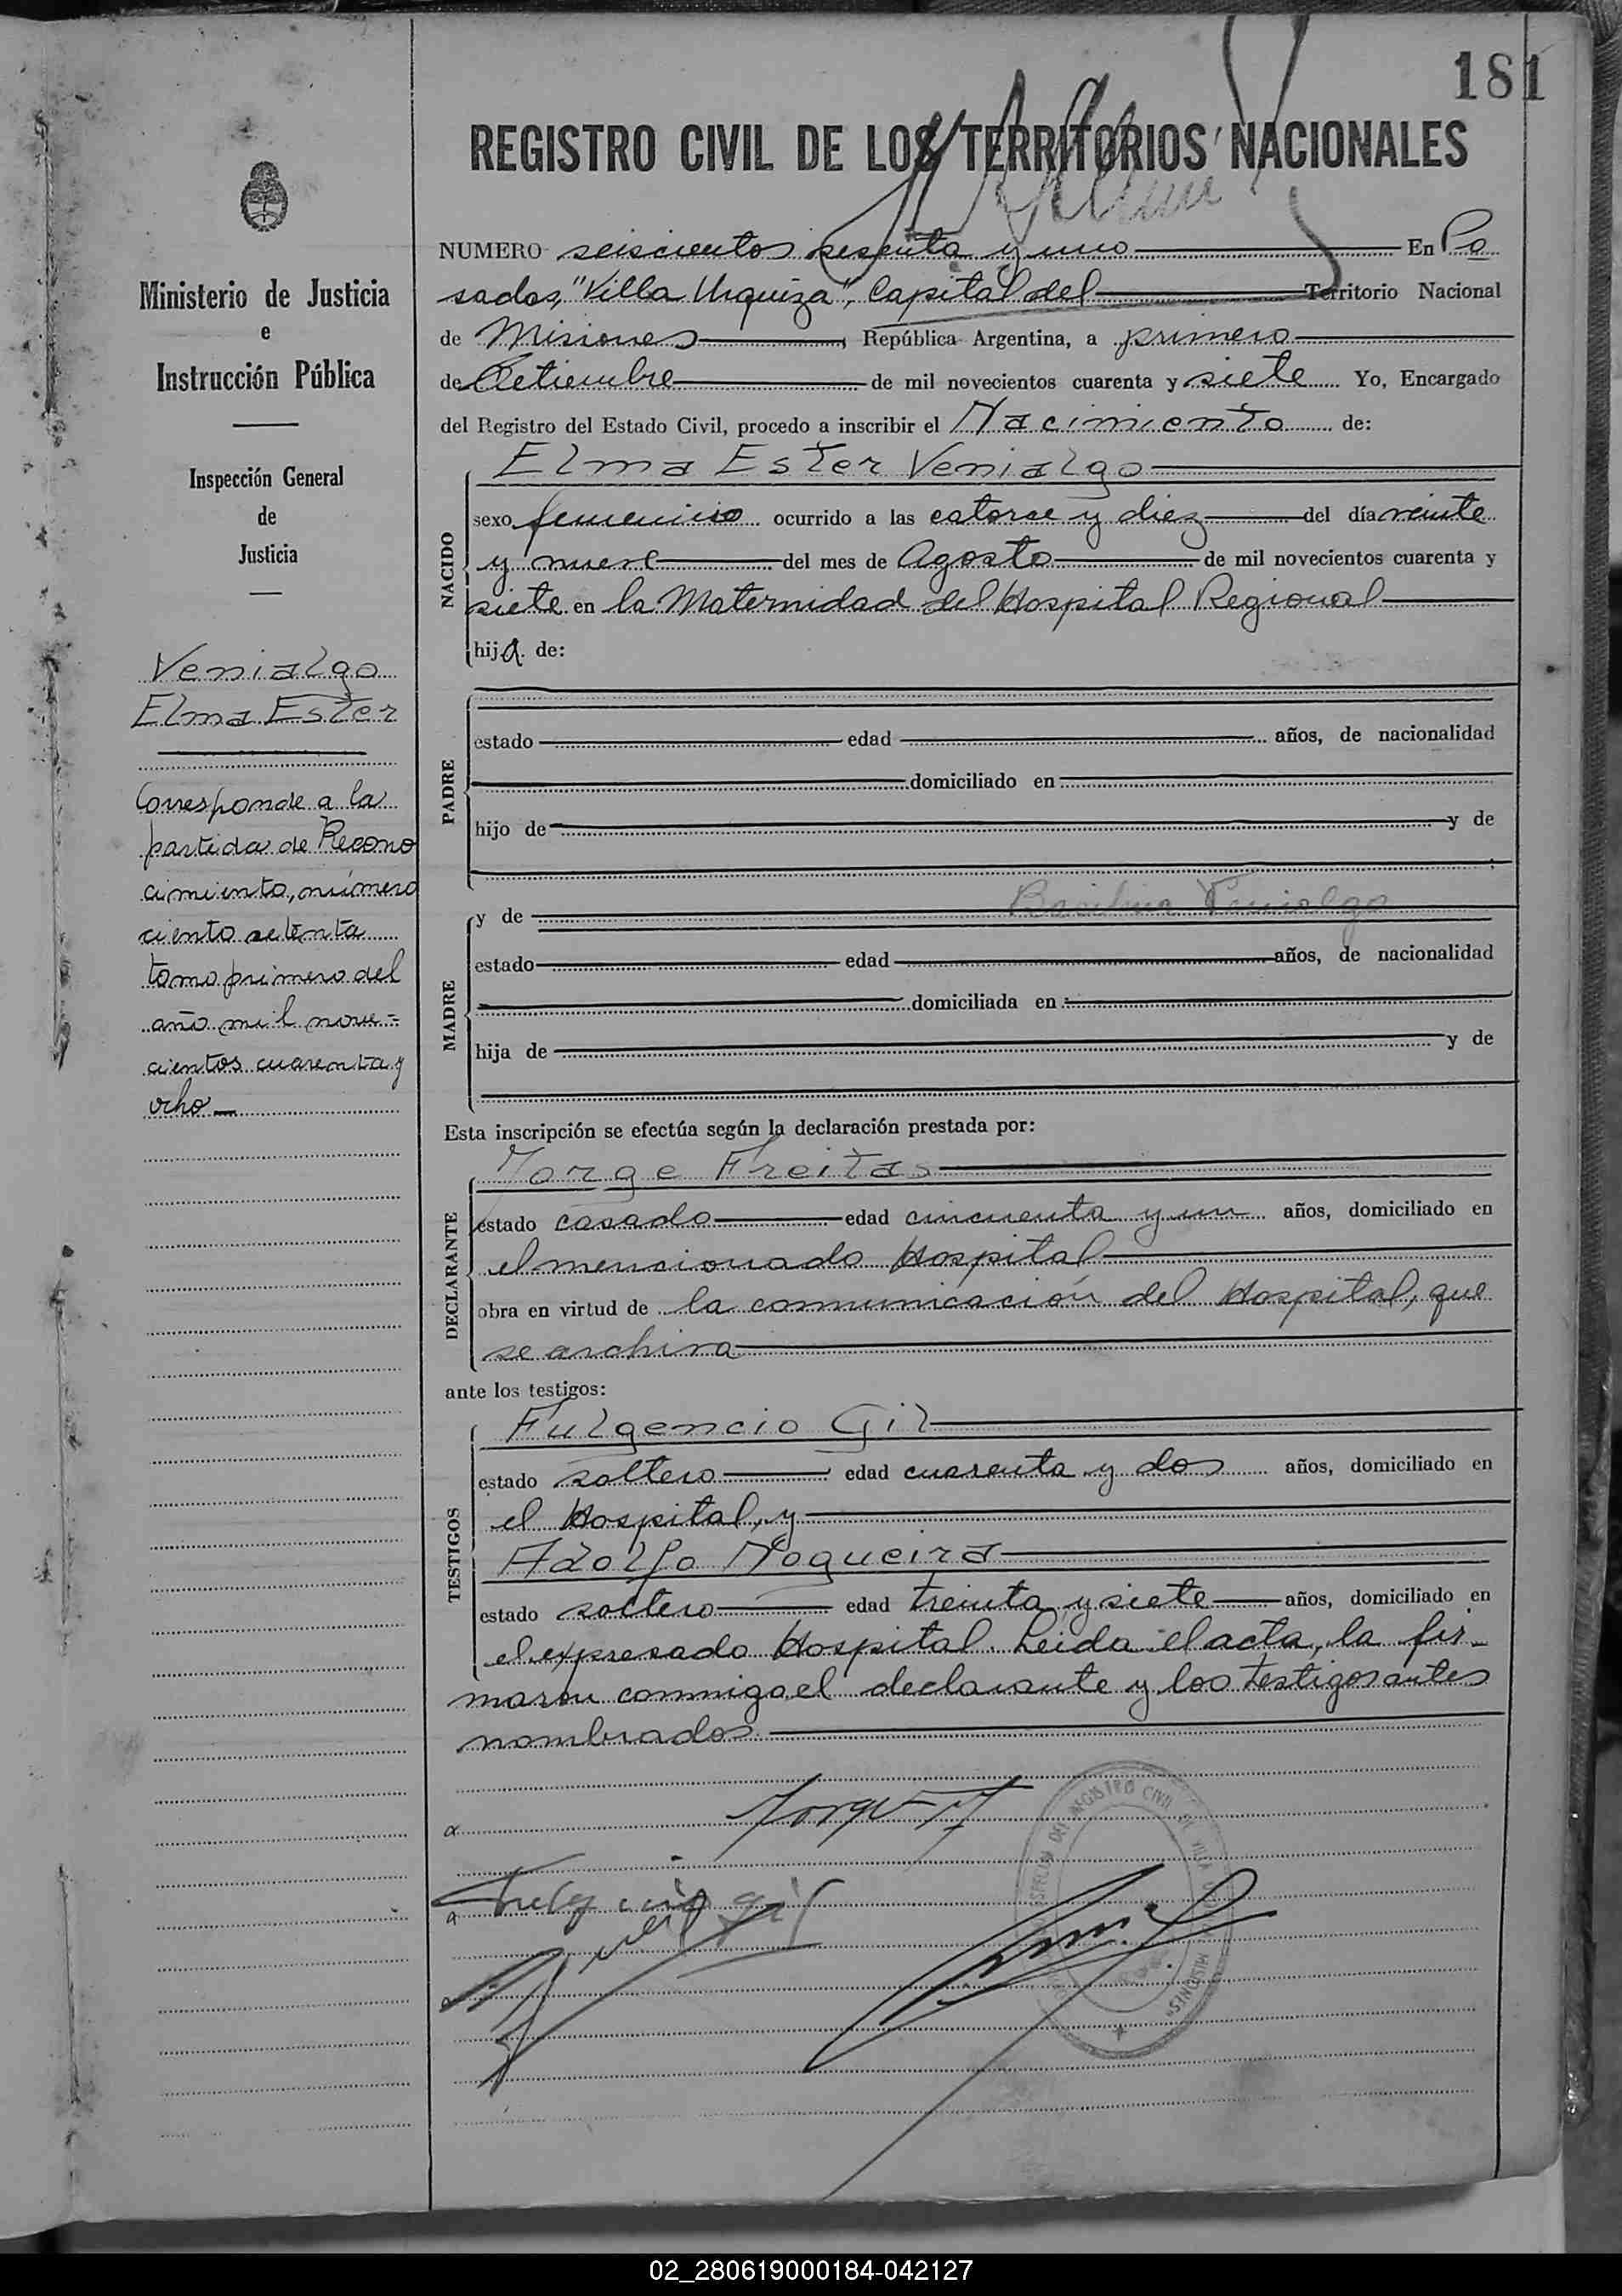 181
REGISTRO CIVIL DE LOS TERRITORIOS NACIONALES
Ministerio de Justicia
e
Instrucción Pública
Inspección General
de
Justicia
Venialgo
Elma Ester
Corresponde a la
partida de Recono
cimiento, número
ciento setenta
tomo primero del
año mil nove=
cientos cuarenta y
ocho
NUMERO seiscientos sesenta y uno En Po
sadas, "Villa Urquiza", Capital del Territorio Nacional
de Misiones, República Argentina, a primero
de Setiembre de mil novecientos cuarenta y siete Yo, Encargado
del Registro del Estado Civil, procedo a inscribir el Nacimiento de:
Elma Ester Venialgo
NACIDO
sexo femenino ocurrido a las catorce y diez del día veinte
y nueve del mes de Agosto de mil novecientos cuarenta y
siete en la Maternidad del Hospital Regional
hija de:
PADRE
estado edad años, de nacionalidad
domiciliado en
hijo de y de
MADRE
y de Venialgo
estado edad años, de nacionalidad
domiciliada en
hija de y de
Esta inscripción se efectúa según la declaración prestada por:
Jorge Freitas
DECLARANTE
estado casado edad cincuenta y un años, domiciliado en
el mencionado Hospital
obra en virtud de la comunicación del Hospital, que
se archiva
ante los testigos:
Fulgencio Gil
TESTIGOS
estado soltero edad cuarenta y dos años, domiciliado en
el Hospital, y
Adolfo Nogueira
estado soltero edad treinta y siete años, domiciliado en
el expresado Hospital. Leida el acta, la fir-
maron conmigo el declarante y los testigos antes
nombrados.
Jorge F
Fulgencio Gil
REGISTRO CIVIL
MISIONES
02_280619000184-042127